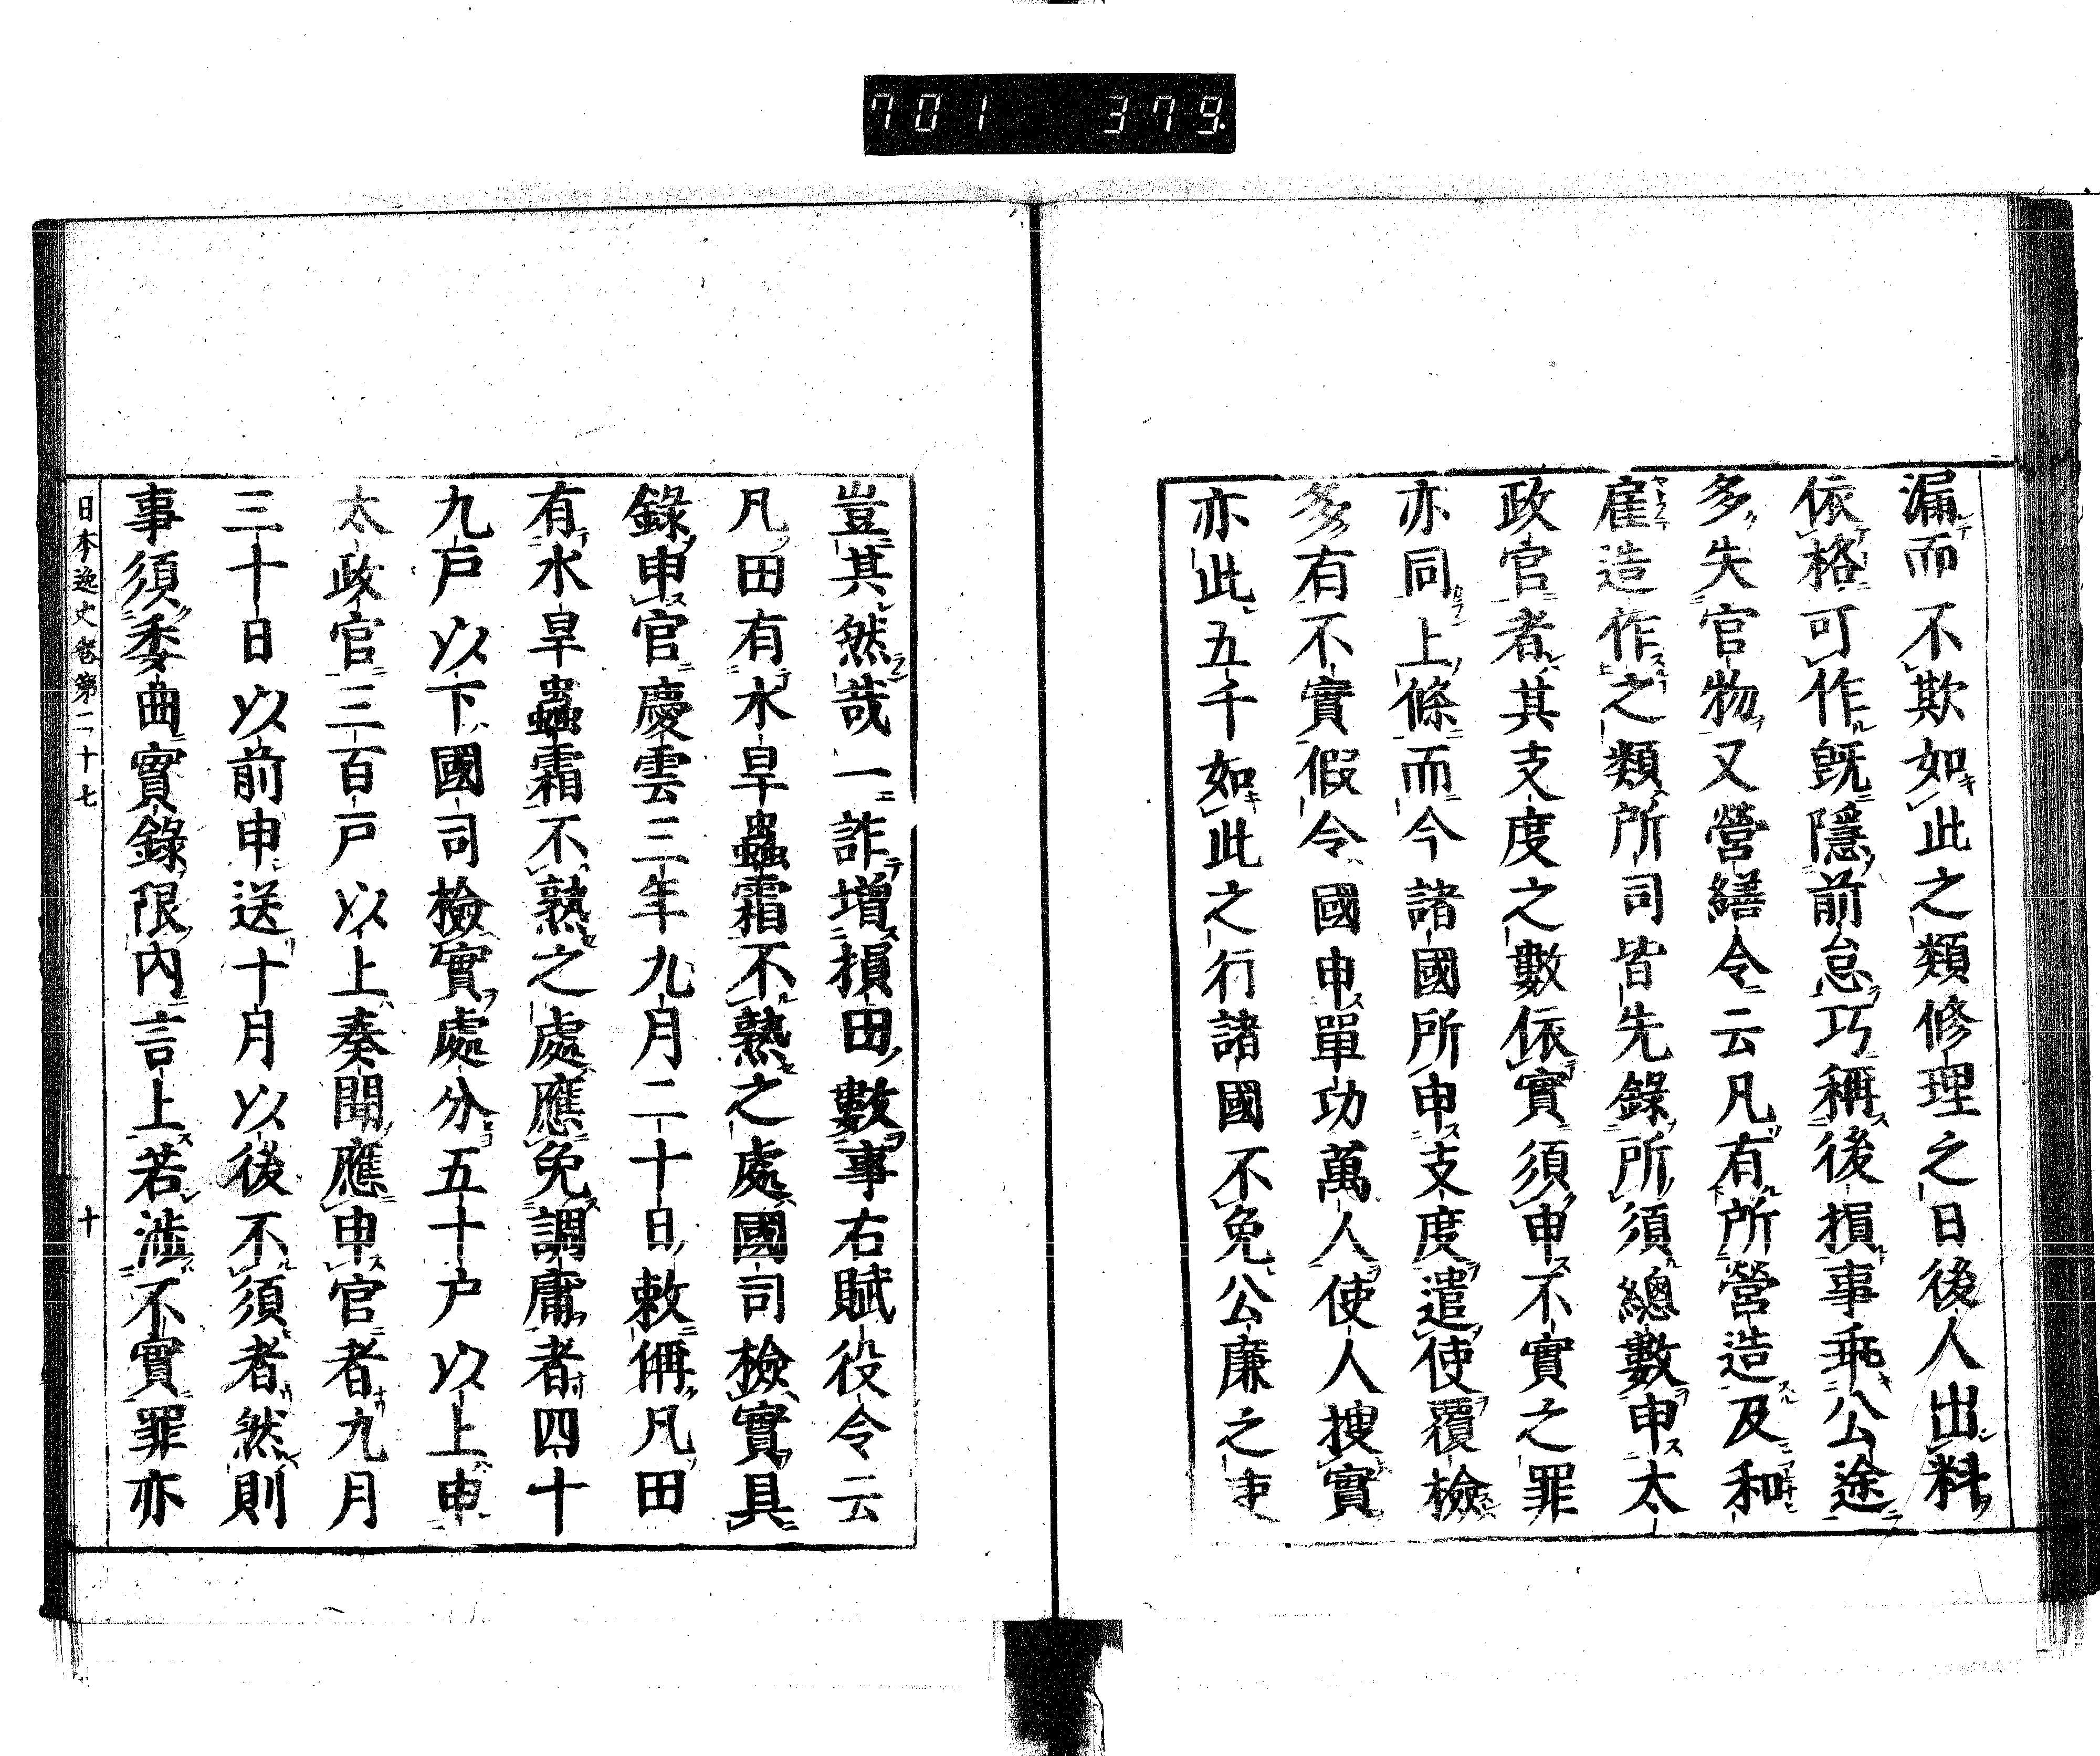 701 379.
漏而不欺如此之類修理之日後人出料
依格可作既隱前怠巧稱後損事乖公途
多失官物又營繕令云凡有所營造及和
雇造作之類所司皆先錄所須總數申太
政官者其支度之數依實須申不實之罪
亦同上條而今諸國所申支度遣使覆檢
多有不實假令國申單功萬人使人搜實
亦此五千如此之行諸國不免公廉之吏
豈其然哉一詐增損田數事右賦役令云
凡田有水旱蟲霜不熟之處國司檢實具
錄申官慶雲三年九月二十日敕偁凡田
有水旱蟲霜不熟之處應免調庸者四十
九戸以下國司檢實處分五十戸以上申
太政官三百戸以上奏聞應申官者九月
三十日以前申送十月以後不須者然則
事須委曲實錄限內言上若涉不實罪亦
日本逸史卷第二十七 十